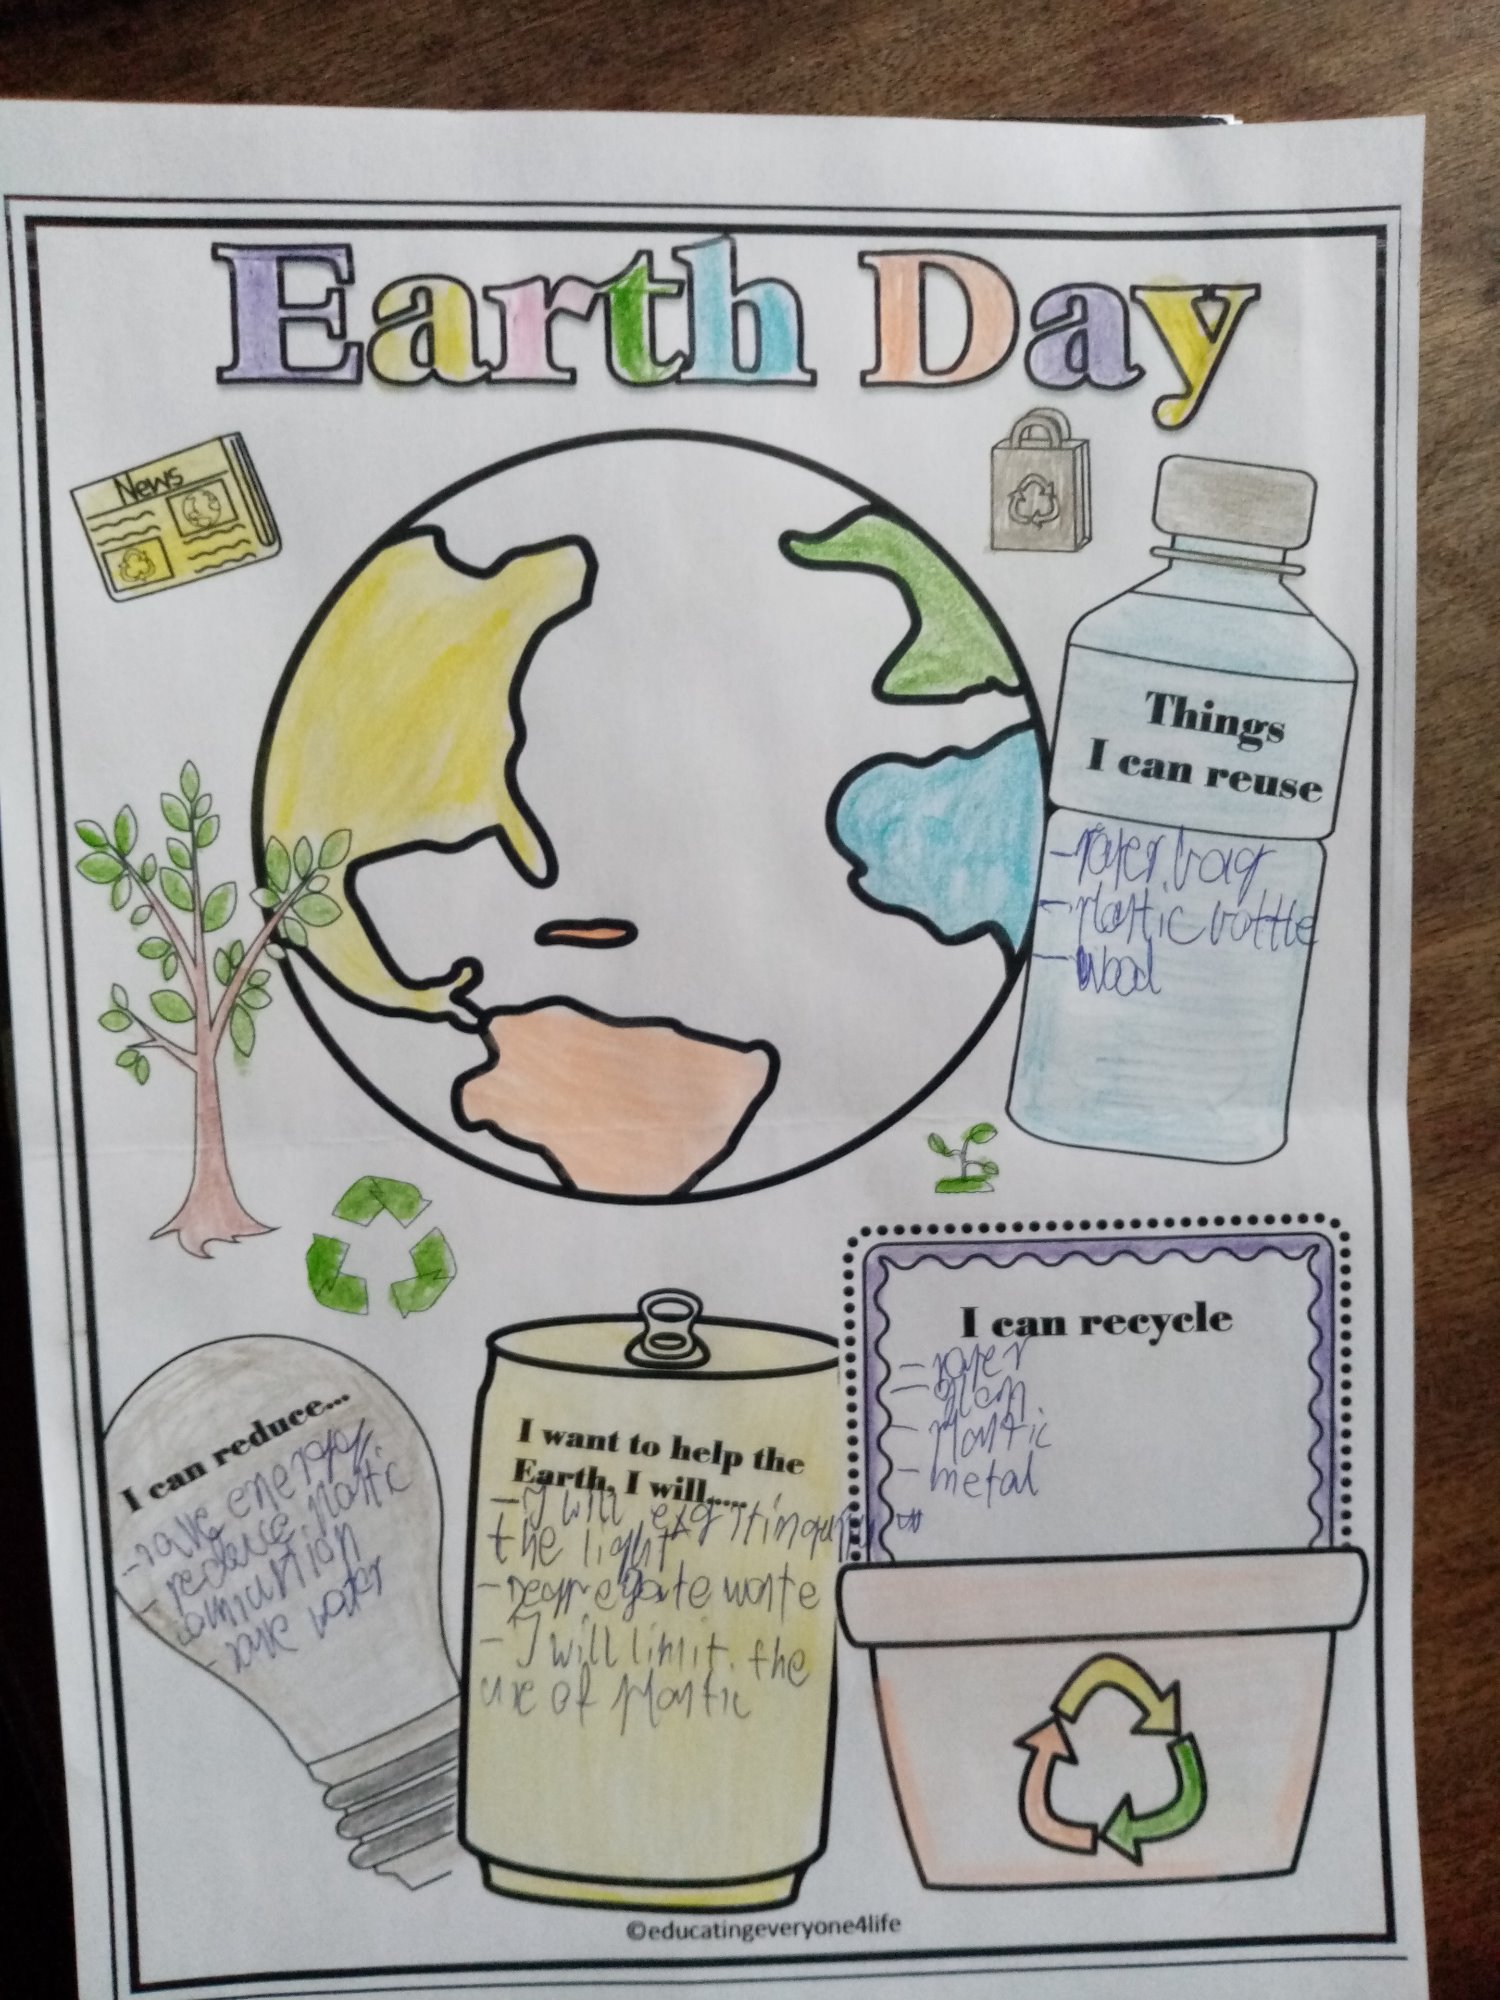 Earth Day
News
Things
I can reuse
- paper bag
- plastic bottle
- wood
I can recycle
- paper
- glass
- plastic
- metal
I can reduce...
- save energy
- reduce plastic
- save water
I want to help the
Earth, I will....
- I will
the light
- segregate waste
- I will limit the
use of plastic
©educatingeveryone4life